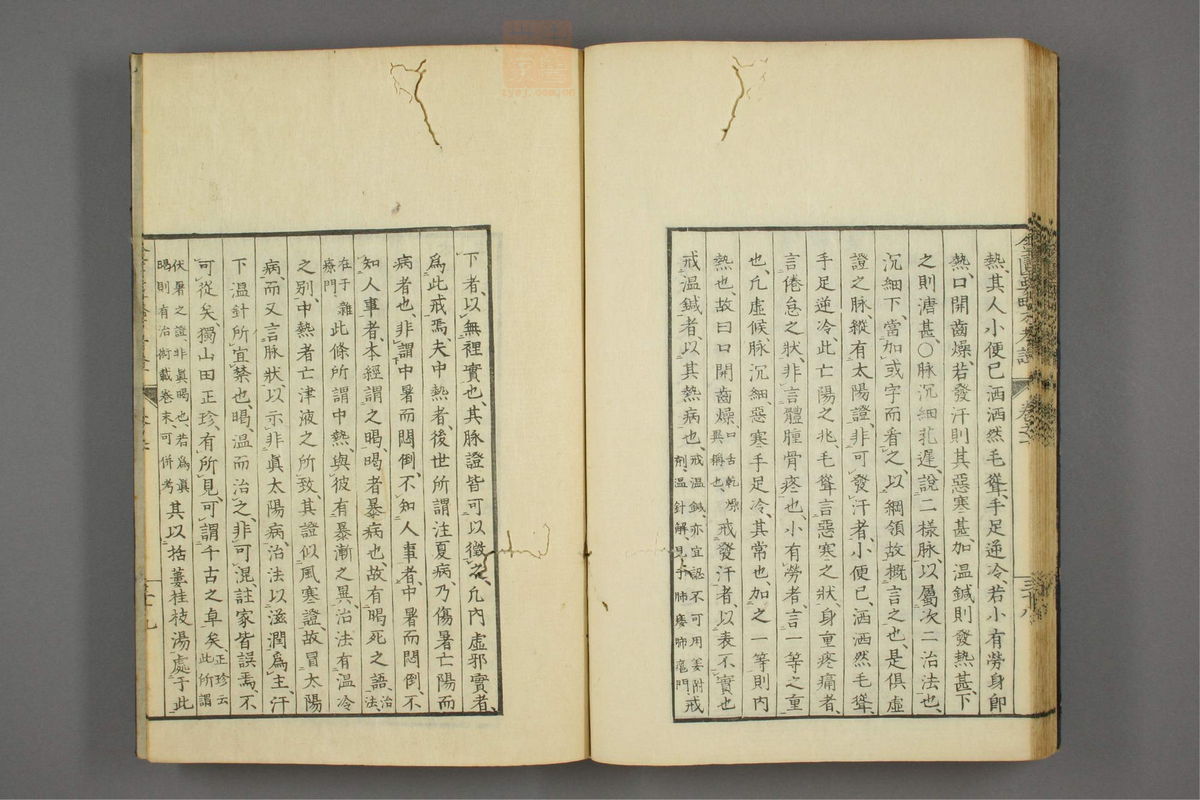 熱、其人小便已洒洒然毛聳、手足逆冷、若小有勞身卽
熱、口開齒燥、若發汗則其惡寒甚、加温鍼則發熱甚、下
之則溏甚、〇脉沉細芤遲、說二樣脉、以屬次二治法也、
沉細下、當加或字而看之、以綱領故概言之也、是俱虛
證之脉、縱有太陽證、非可發汗者、小便已、洒洒然毛聳、
手足逆冷、此亡陽之兆、毛聳言惡寒之狀、身重疼痛者、
言倦怠之狀、非言體腫骨疼也、小有勞者、言一等之重
也、凡虛候脉沉細、惡寒手足冷、其常也、加之一等則内
熱也、故曰口開齒燥、口舌乾燥異稱也、戒發汗者、以表不實也
戒温鍼者、以其熱病也、戒温鍼、亦宜認不可用姜附戒劑、温針解、見于肺痿肺癰門
下者、以無裡實也、其脉證皆可以徵之、凡内虛邪實者、
爲此戒焉、夫中熱者、後世所謂注夏病、乃傷暑亡陽而
病者也、非謂中暑而悶倒、不知人事者、中暑而悶倒、不
知人事者、本經謂之暍、暍者暴病也、故有暍死之語、治法、
在于雜療門此條所謂中熱、與彼有暴漸之異、治法有温冷
之别、中熱者亡津液之所致、其證似風寒證、故冒太陽
病、而又言脉狀、以示非眞太陽病、治法以滋潤爲主、汗
下温針所宜禁也、暍、温而治之、非可混、註家皆誤焉、不
可從矣、獨山田正珍、有所見、可謂千古之卓矣、正珍云此所謂
伏暑之證、非眞暍也、若爲眞暍則有治術載卷末、可併考其以括蔞桂枝湯處于此